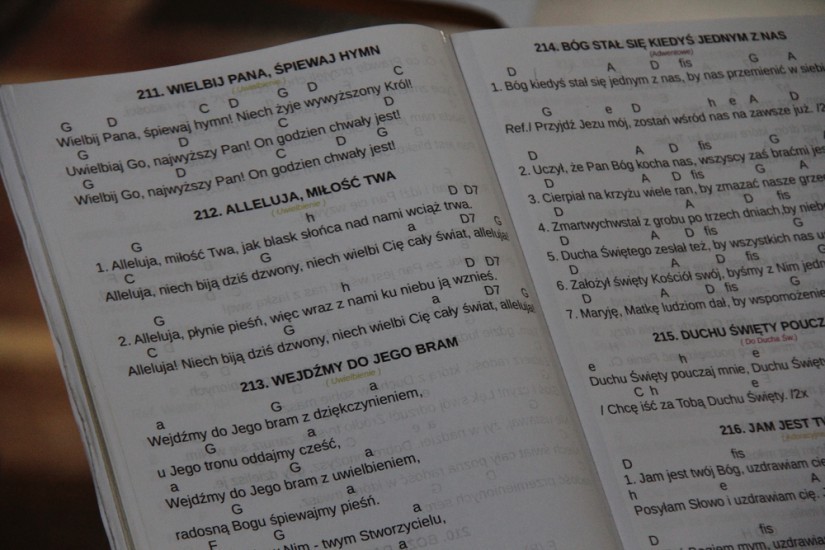 211. WIELBIJ PANA, ŚPIEWAJ HYMN
( Uwielbienie )
G D C D G D C
Wielbij Pana, śpiewaj hymn! Niech żyje wywyższony Król!
G D C D
Uwielbiaj Go, najwyższy Pan! On godzien chwały jest!
G D C D G
Wielbij Go, najwyższy Pan! On godzien chwały jest!
212. ALLELUJA, MIŁOŚĆ TWA
( Uwielbienie )
G h D D7
1. Alleluja, miłość Twa, jak blask słońca nad nami wciąż trwa.
C G a D7 G
Alleluja, niech biją dziś dzwony, niech wielbi Cię cały świat, alleluja!
G h D D7
2. Alleluja, płynie pieśń, więc wraz z nami ku niebu ją wznieś.
C G a D7 G
Alleluja! Niech biją dziś dzwony, niech wielbi Cię cały świat, alleluja!
213. WEJDŹMY DO JEGO BRAM
( Uwielbienie )
a G a
Wejdźmy do Jego bram z dziękczynieniem,
G a
u Jego tronu oddajmy cześć,
a G a
Wejdźmy do Jego bram z uwielbieniem,
G a
radosną Bogu śpiewajmy pieśń.
F G a
Nim - twym Stworzycielu,
a
214. BÓG STAŁ SIĘ KIEDYŚ JEDNYM Z NAS
(Adwentowe)
D A D fis G A
1. Bóg kiedyś stał się jednym z nas, by nas przemienić w siebi
G e D h e A D
Ref./ Przyjdź Jezu mój, zostań wśród nas na zawsze już. /2
D A D fis G
2. Uczył, że Pan Bóg kocha nas, wszyscy zaś braćmi jes
D A D fis G A
3. Cierpiał na krzyżu wiele ran, by zmazać nasze grze
D A D fis
4. Zmartwychwstał z grobu po trzech dniach,by nieb
D A D fis G
5. Ducha Świętego zesłał też, by wszystkich nas u
D A D fis G
6. Założył święty Kościół swój, byśmy z Nim jedn
D A D fis G
7. Maryję, Matkę ludziom dał, by wspomożenie
215. DUCHU ŚWIĘTY POUCZ
( Do Ducha Św.)
e h e
Duchu Święty pouczaj mnie, Duchu Święt
C h e
/ Chcę iść za Tobą Duchu Święty. /2x
216. JAM JEST TW
D fis
1. Jam jest twój Bóg, uzdrawiam cię
h e A
Posyłam Słowo i uzdrawiam cię.
D fis
mym, uzdrawia